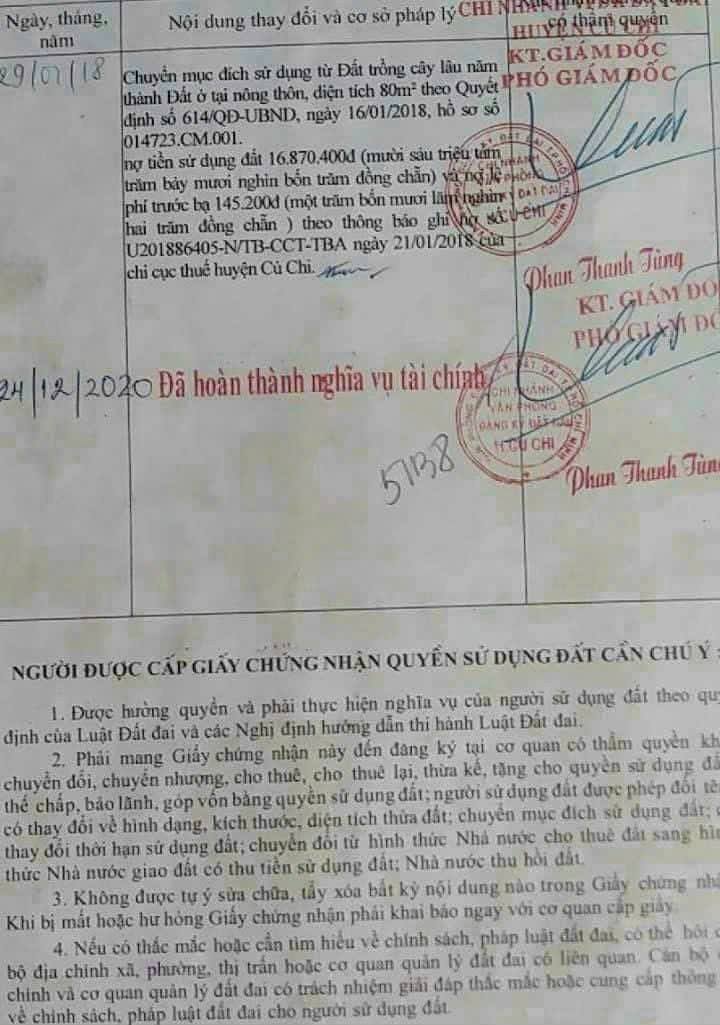 Ngày, tháng, năm
Nội dung thay đổi và cơ sở pháp lý
CHI NHÁNH
có thẩm quyền
HUYỆN CỦ CHI
KT.GIÁM ĐỐC
PHÓ GIÁM ĐỐC
29/01/18
Chuyển mục đích sử dụng từ Đất trồng cây lâu năm
thành Đất ở tại nông thôn, diện tích 80m² theo Quyết
định số 614/QĐ-UBND, ngày 16/01/2018, hồ sơ số
014723.CM.001.
nợ tiền sử dụng đất 16.870.400đ (mười sáu triệu tám
trăm bảy mươi nghìn bốn trăm đồng chẵn) và nợ lệ
phí trước bạ 145.200đ (một trăm bốn mươi lăm nghìn
hai trăm đồng chẵn ) theo thông báo ghi nợ số
U201886405-N/TB-CCT-TBA ngày 21/01/2018 của
chi cục thuế huyện Củ Chi.
CHI NHÁNH
VĂN PHÒNG
ĐĂNG KÝ ĐẤT ĐAI
H.CỦ CHI
Phan Thanh Tùng
KT. GIÁM ĐỐ
PHÓ GIÁM ĐỐ
24/12/2020 Đã hoàn thành nghĩa vụ tài chính
CHI NHÁNH
VĂN PHÒNG
ĐĂNG KÝ ĐẤT ĐAI
H.CỦ CHI
5138
Phan Thanh Tùng
NGƯỜI ĐƯỢC CẤP GIẤY CHỨNG NHẬN QUYỀN SỬ DỤNG ĐẤT CẦN CHÚ Ý :
1. Được hưởng quyền và phải thực hiện nghĩa vụ của người sử dụng đất theo quy
định của Luật Đất đai và các Nghị định hướng dẫn thi hành Luật Đất đai.
2. Phải mang Giấy chứng nhận này đến đăng ký tại cơ quan có thẩm quyền kh
chuyển đổi, chuyển nhượng, cho thuê, cho thuê lại, thừa kế, tặng cho quyền sử dụng đấ
thế chấp, bảo lãnh, góp vốn bằng quyền sử dụng đất; người sử dụng đất được phép đổi tê
có thay đổi về hình dạng, kích thước, diện tích thửa đất; chuyển mục đích sử dụng đất; c
thay đổi thời hạn sử dụng đất; chuyển đổi từ hình thức Nhà nước cho thuê đất sang hìn
thức Nhà nước giao đất có thu tiền sử dụng đất; Nhà nước thu hồi đất.
3. Không được tự ý sửa chữa, tẩy xóa bất kỳ nội dung nào trong Giấy chứng nhậ
Khi bị mất hoặc hư hỏng Giấy chứng nhận phải khai báo ngay với cơ quan cấp giấy.
4. Nếu có thắc mắc hoặc cần tìm hiểu về chính sách, pháp luật đất đai, có thể hỏi c
bộ địa chính xã, phường, thị trấn hoặc cơ quan quản lý đất đai có liên quan. Cán bộ
chính và cơ quan quản lý đất đai có trách nhiệm giải đáp thắc mắc hoặc cung cấp thông
về chính sách, pháp luật đất đai cho người sử dụng đất.